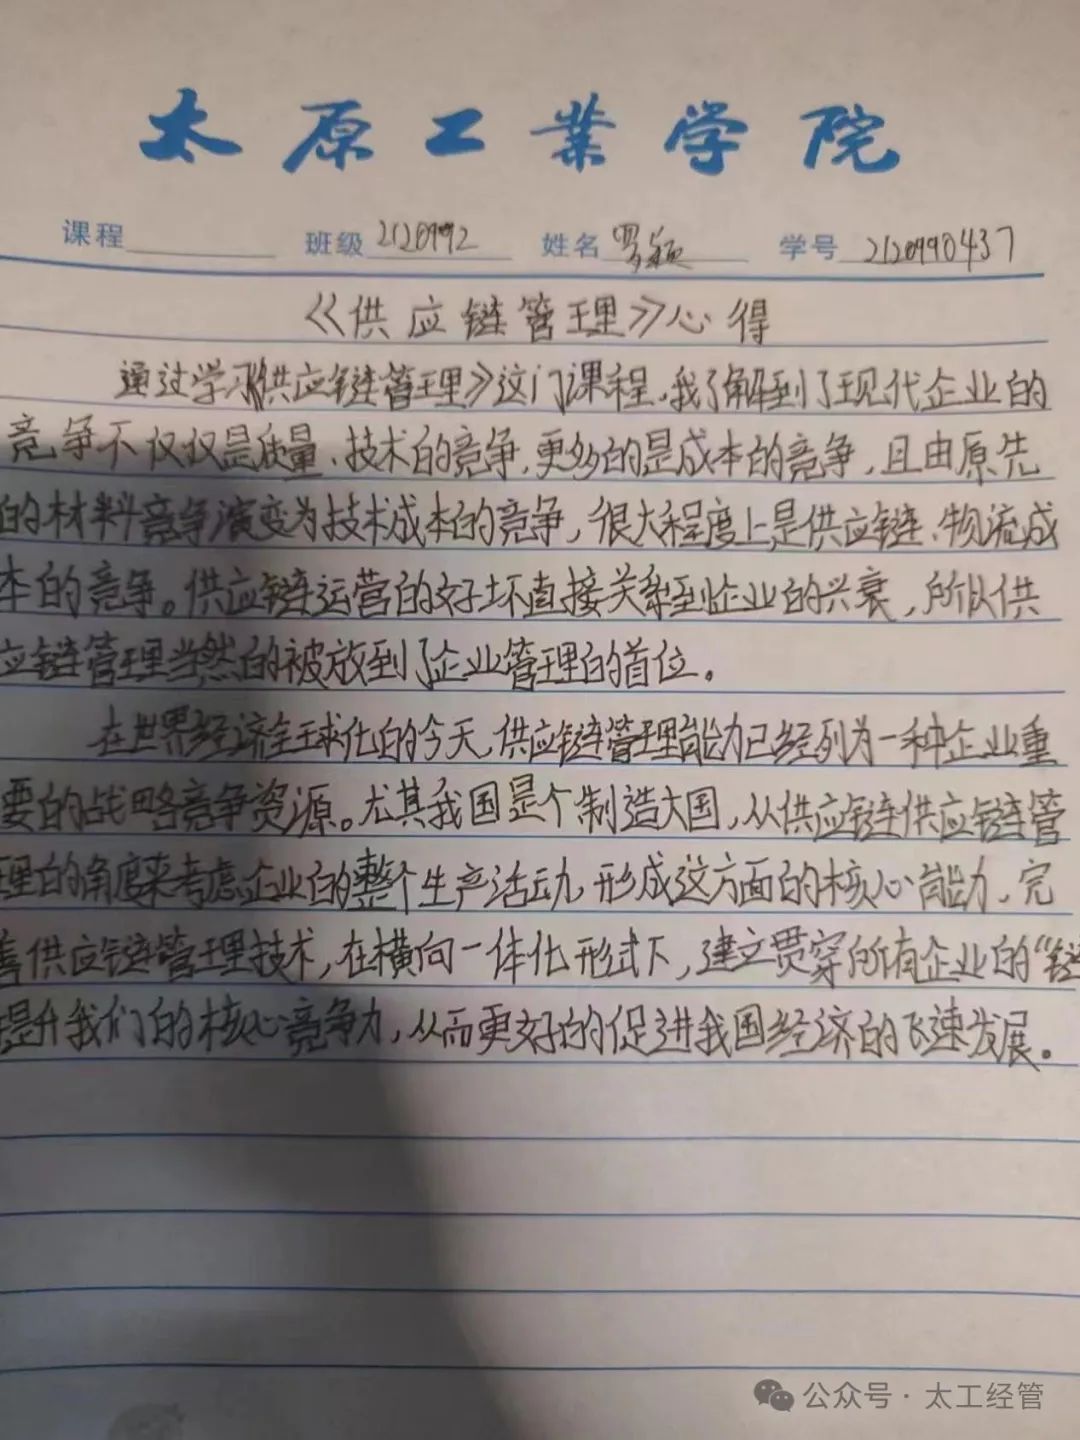 太原工业学院
课程 班级 2120992 姓名 罗颖 学号 2120990437
《供应链管理》心得
通过学习《供应链管理》这门课程,我了解到了现代企业的
竞争不仅仅是质量、技术的竞争,更多的是成本的竞争,且由原先
的材料竞争演变为技术成本的竞争,很大程度上是供应链、物流成
本的竞争。供应链运营的好坏直接关系到企业的兴衰,所以供
应链管理当然的被放到了企业管理的首位。
在世界经济全球化的今天,供应链管理能力已经列为一种企业重
要的战略竞争资源。尤其我国是个制造大国,从供应链供应链管
理的角度来考虑企业的整个生产活动,形成这方面的核心能力,完
善供应链管理技术,在横向一体化形式下,建立贯穿所有企业的“链
提升我们的核心竞争力,从而更好的促进我国经济的飞速发展。
公众号·太工经管